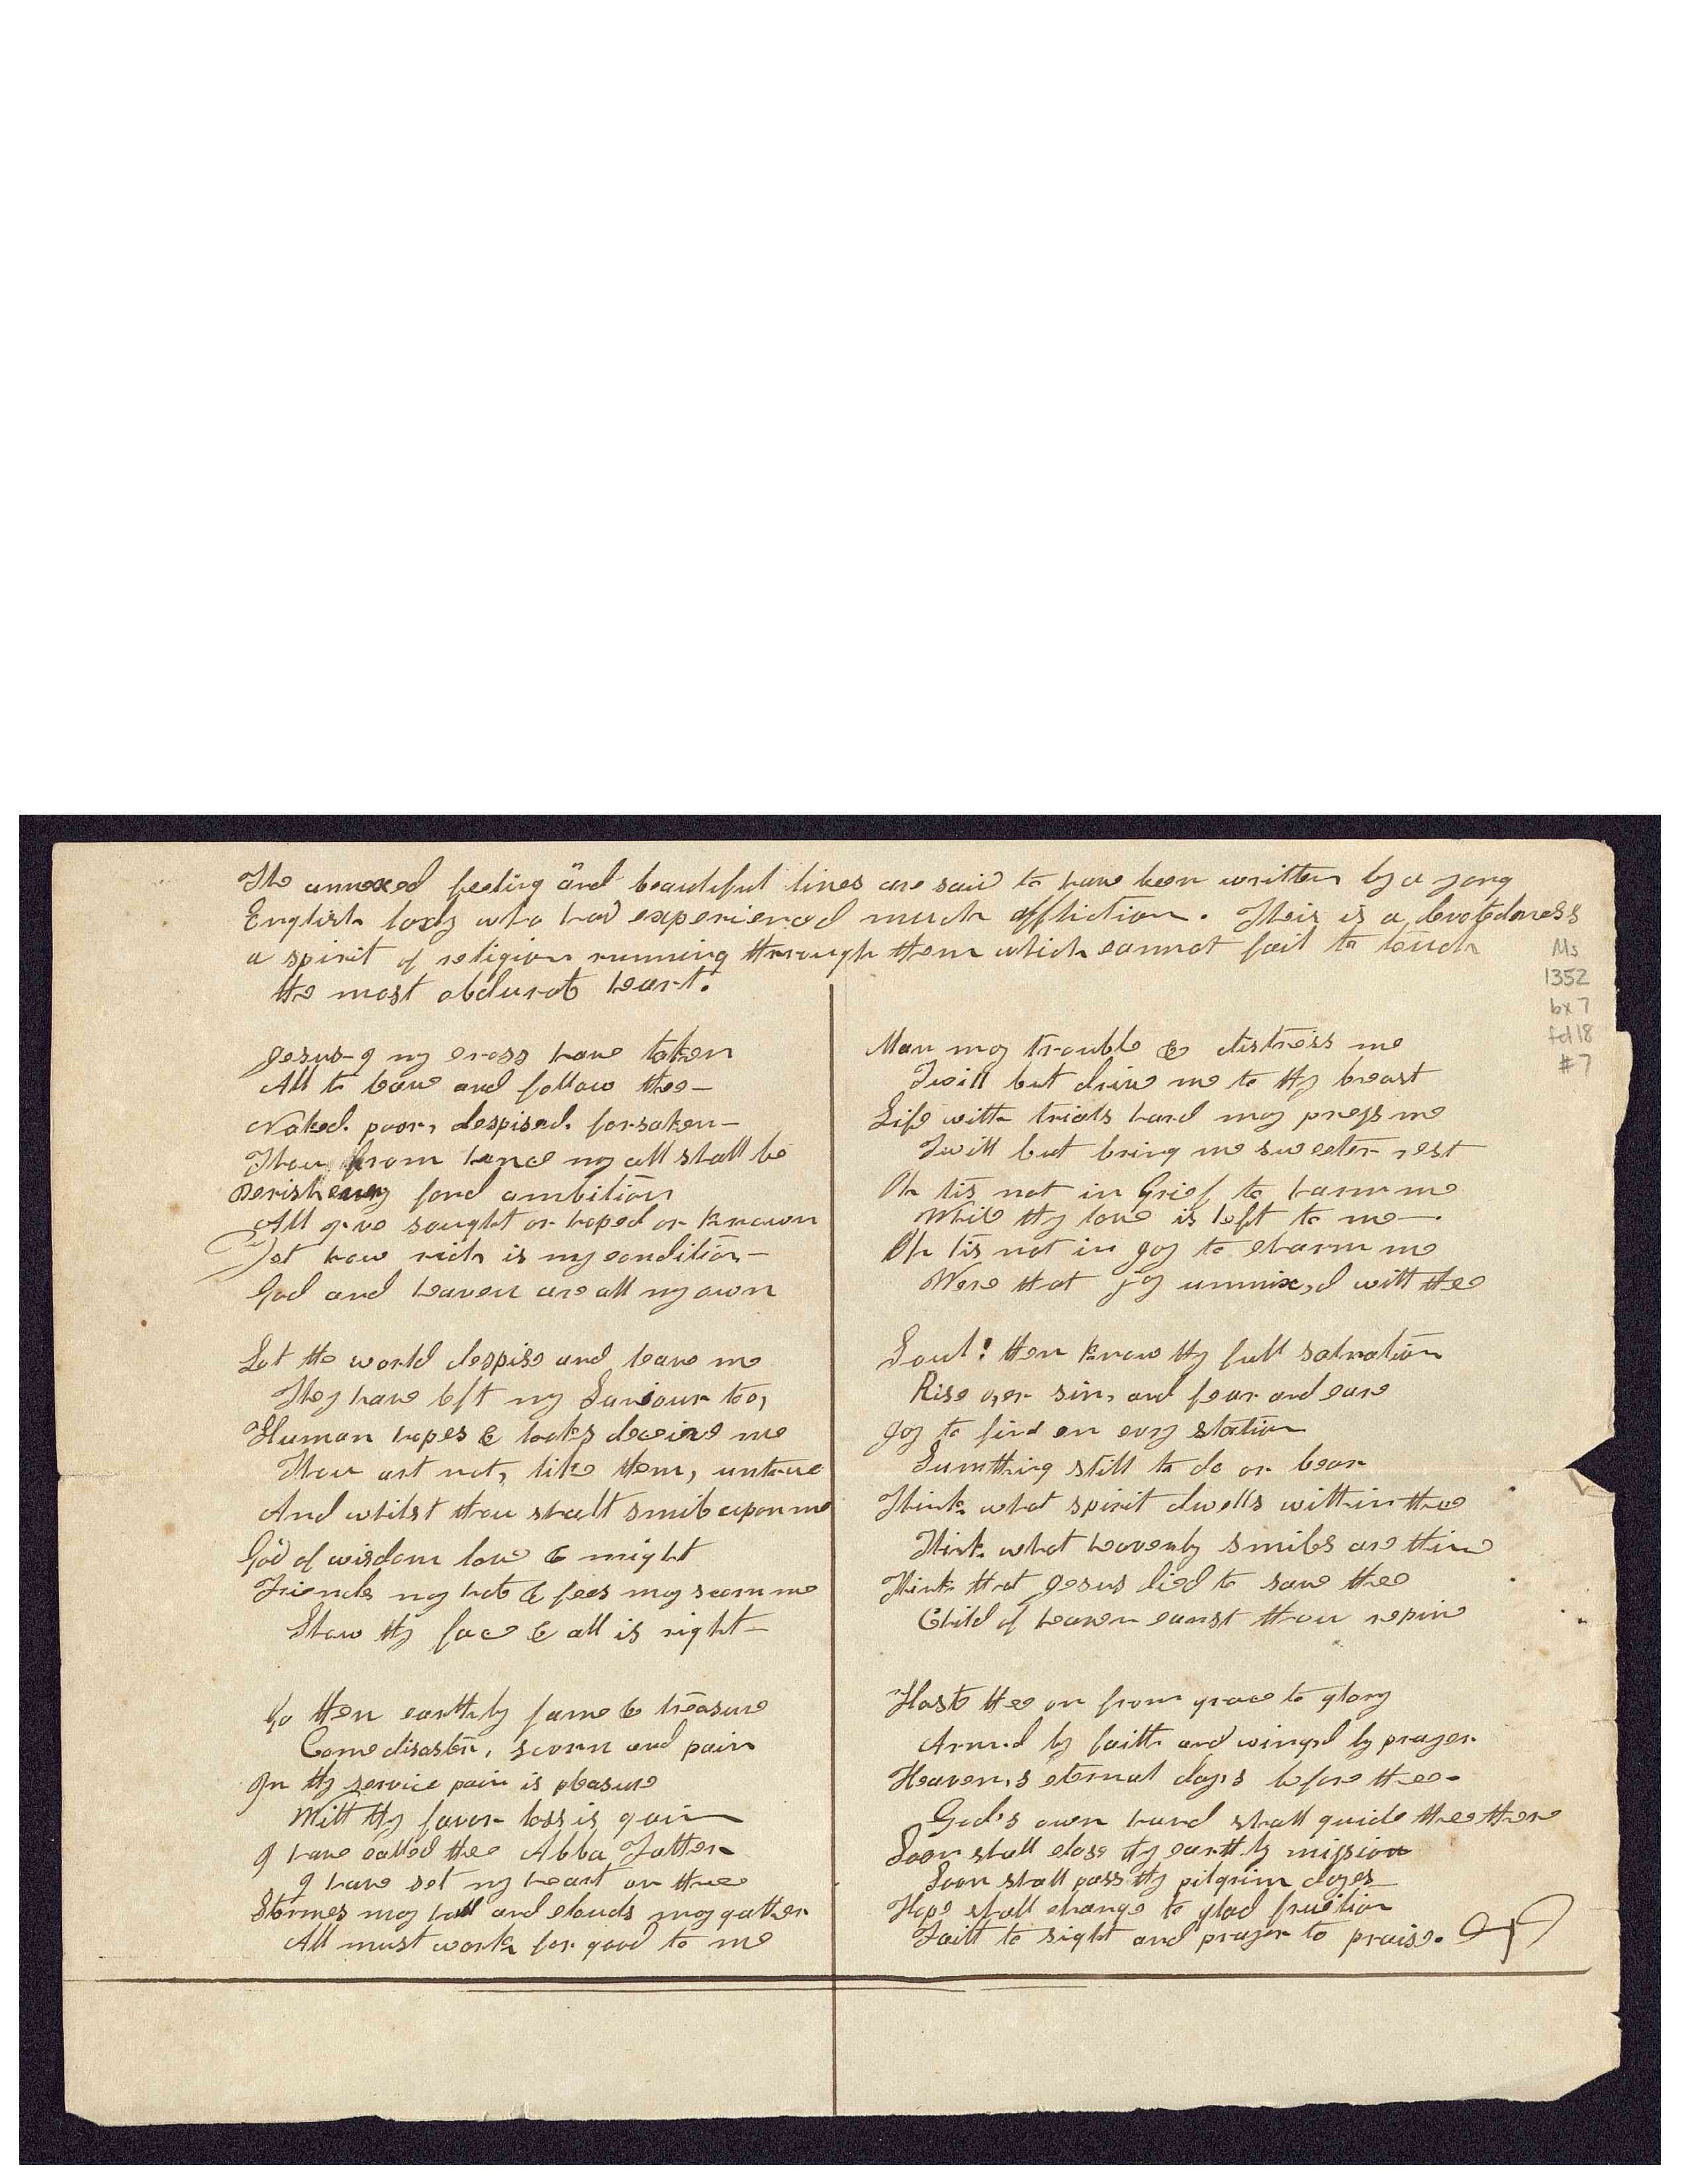 The annexed feeling and beautiful lines are said to have been written by a yong
English lady who had experienced much affliction. Their is a devotedness
a spirit of religion running through them which cannot fail to touch
the most obdurate heart.
Jesus I my cross have taken
All to leave and follow thee—
Naked. poor, despised. forsaken—
Thou from hence my all shall be
Perish every fond ambition
All I've sought or hoped or known
Yet how rich is my condition—
God and heaven are all my own
Let the world despise and leave me
They have left my Saviour too,
Human hopes & looks deceive me
Thou art not, like them, untrue
And whilst thou shalt smile upon me
God of wisdom love & might
Friends my hate & foes may scorn me
Show thy face & all is right—
Go then earthly fame & treasure
Come disaster, scorn and pain
In thy service pain is pleasure
With thy favor loss is gain
I have called thee Abba Father
I have set my heart on thee
Stormes may howl and clouds may gather
All must work for good to me
Man may trouble & distress me
Twill but drive me to thy breast
Life with trials hard may press me
Twill but bring me sweeter rest
Oh tis not in Grief to harm me
While thy love is left to me—.
Oh tis not in joy to charm me
Were that joy unmix,d with thee
Soul! then know thy full salvation
Rise o,er sin, and fear and care
Joy to find en evry station
Sumthing still to do or bear
Think what spirit dwells within thee
Think what heavenly smiles are thine
Think that Jesus died to save thee
Child of heaven canst thou repine
Haste thee on from grace to glory
Armed by faith and winged by prayer
Heaven,s eternal day,s before thee.
God's own hand shall guide thee there
Soon shall close thy earthly mission
Soon shall pass thy pilgrim dayes
Hope shall change to glad fruition
Faith to sight and prayer to praise.
Ms
1352
bx 7
fd 18
#7